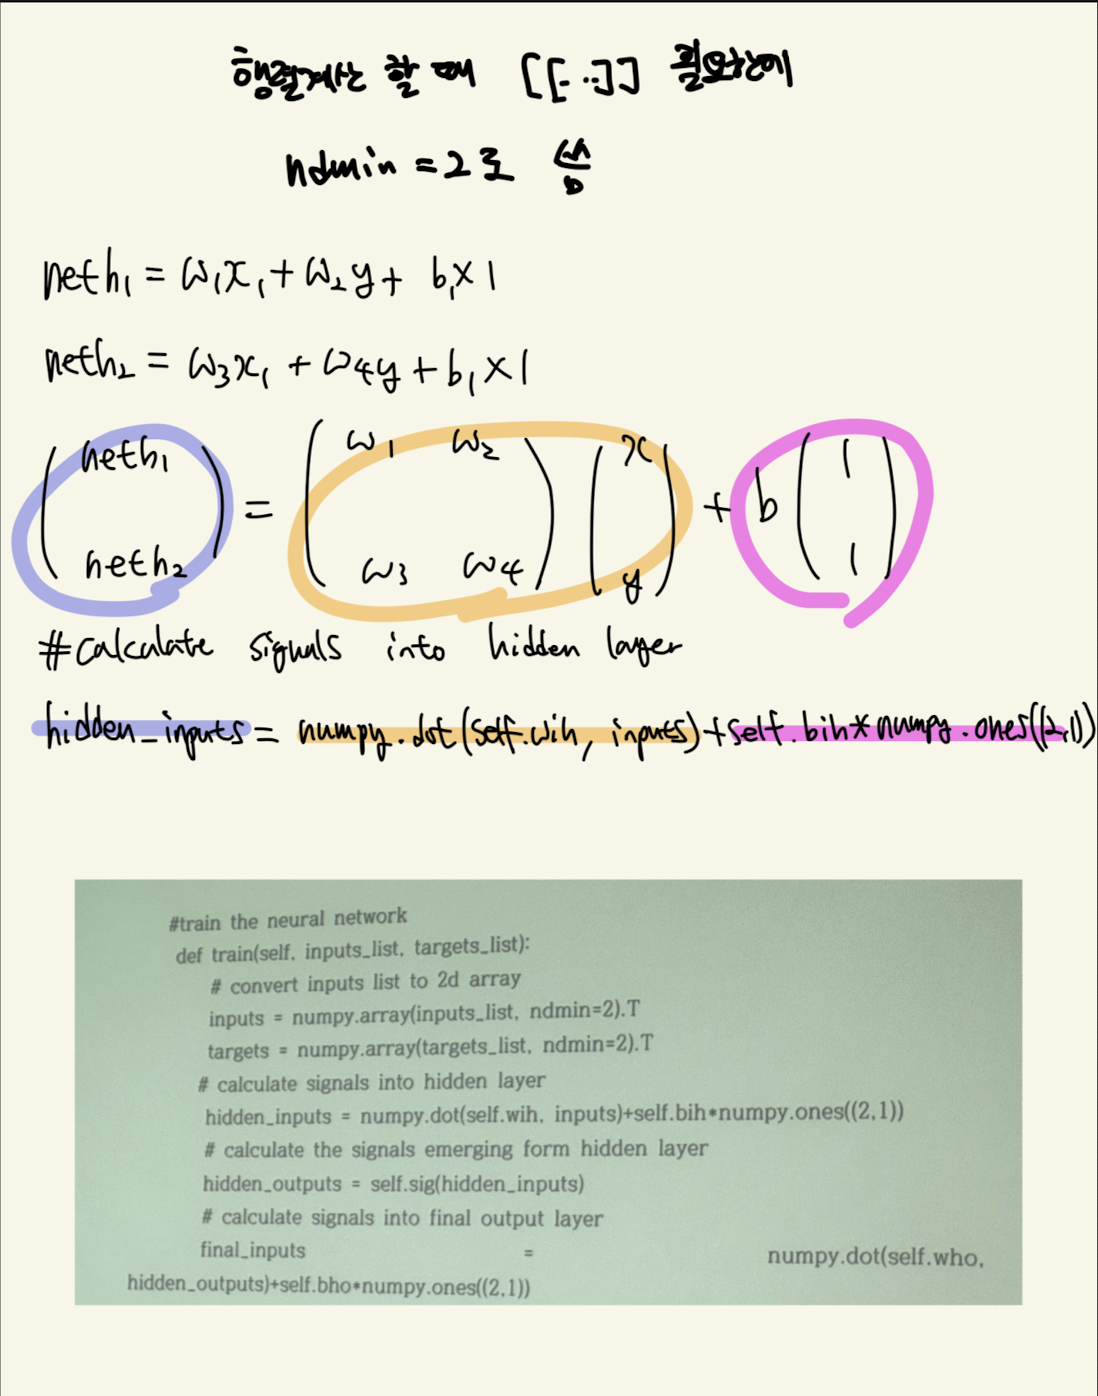 행렬계산 할 때 [[...]] 필요한데
ndmin = 2로 씀
neth₁ = ω₁x₁ + ω₂y + b₁×1
neth₂ = ω₃x₁ + ω₄y + b₁×1
( neth₁ neth₂ ) = ( ω₁ ω₂ ω₃ ω₄ ) ( x y ) + b ( 1 1 )
#calculate signals into hidden layer
hidden_inputs = numpy.dot(self.wih, inputs)+self.bih*numpy.ones((2,1))
#train the neural network
def train(self, inputs_list, targets_list):
# convert inputs list to 2d array
inputs = numpy.array(inputs_list, ndmin=2).T
targets = numpy.array(targets_list, ndmin=2).T
# calculate signals into hidden layer
hidden_inputs = numpy.dot(self.wih, inputs)+self.bih*numpy.ones((2,1))
# calculate the signals emerging form hidden layer
hidden_outputs = self.sig(hidden_inputs)
# calculate signals into final output layer
final_inputs = numpy.dot(self.who,
hidden_outputs)+self.bho*numpy.ones((2,1))